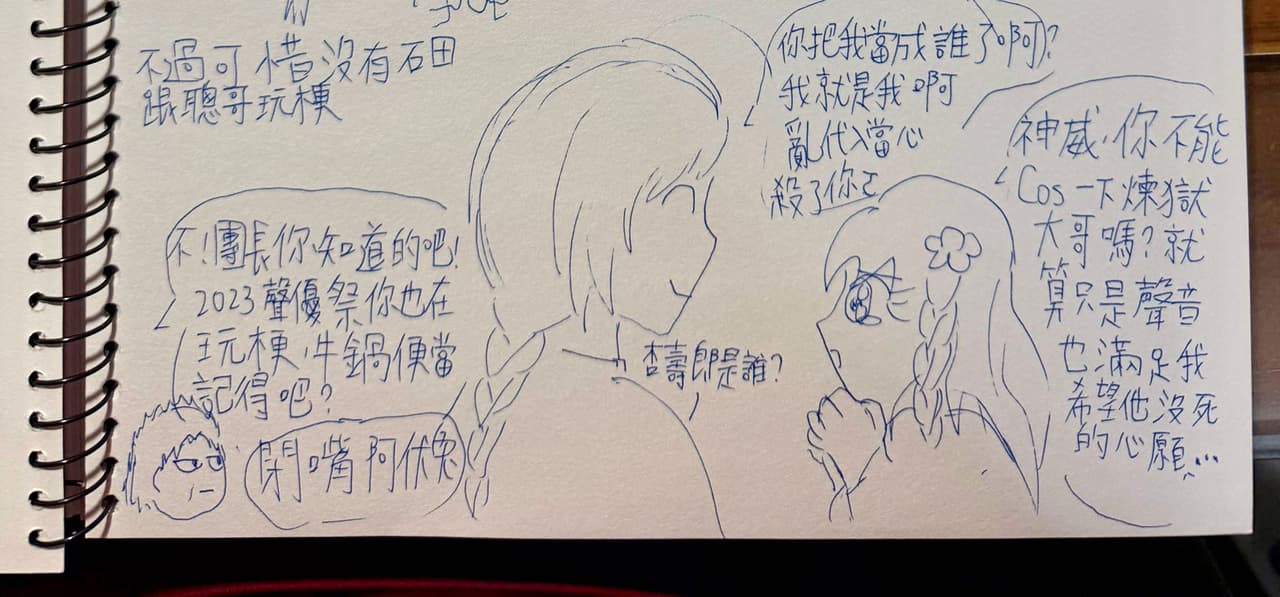 不過可惜沒有石田
跟聰哥玩梗
你把我當成誰了啊?
我就是我啊
亂代入當心
殺了你之
神威,你不能
Cos一下煉獄
大哥嗎?就
算只是聲音
也滿足我
希望他沒死
的心願...
杏壽郎是誰?
不!團長你知道的吧!
2023聲優祭你也在
玩梗,牛鍋便當
記得吧?
閉嘴阿伏兔